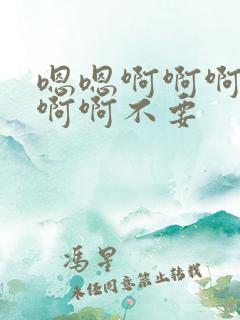 嗯嗯啊啊啊
啊啊不要
冯星
未经同意禁止转载